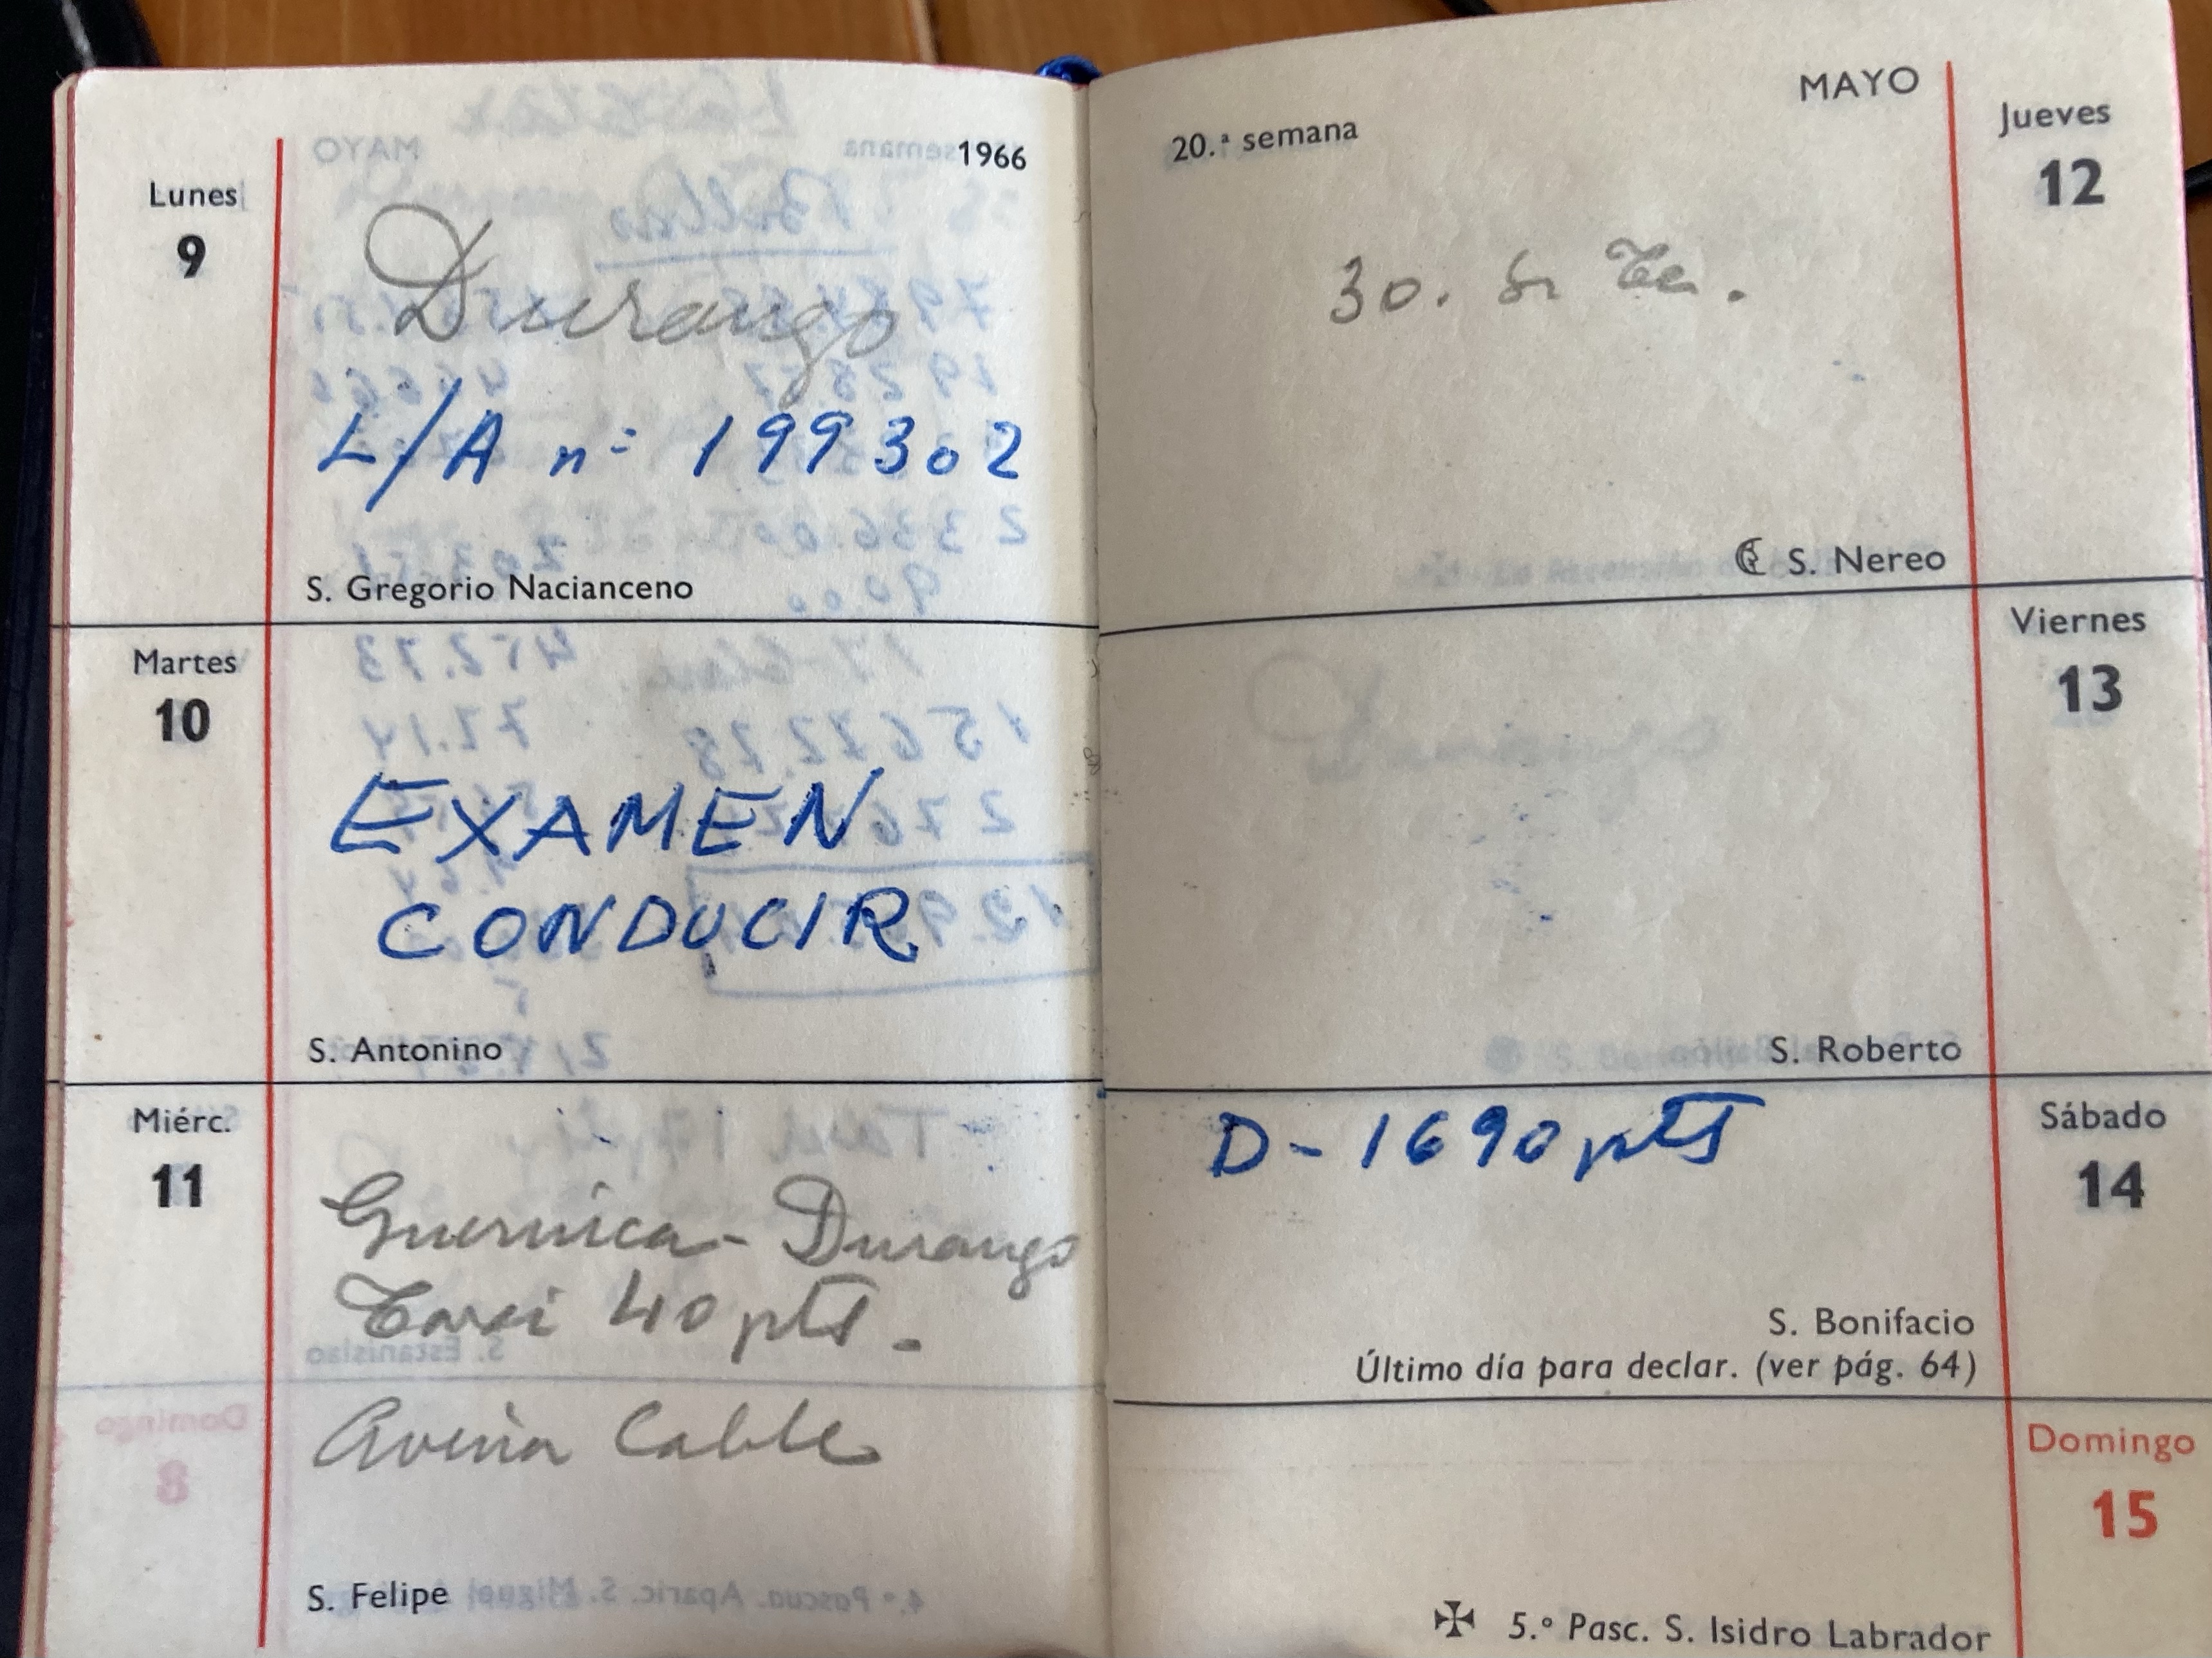 1966
Lunes
9
Durango
L/A nº 199302
S. Gregorio Nacianceno
Martes
10
EXAMEN
CONDUCIR
S. Antonino
Miérc.
11
Guernica - Durango
Taxi 40 pts.-
Avería Cable
S. Felipe
MAYO
20.ª semana
Jueves
12
30.
S. Nereo
Viernes
13
S. Roberto
Sábado
14
D - 1690 pts
S. Bonifacio
Último día para declar. (ver pág. 64)
Domingo
15
5.º Pasc. S. Isidro Labrador